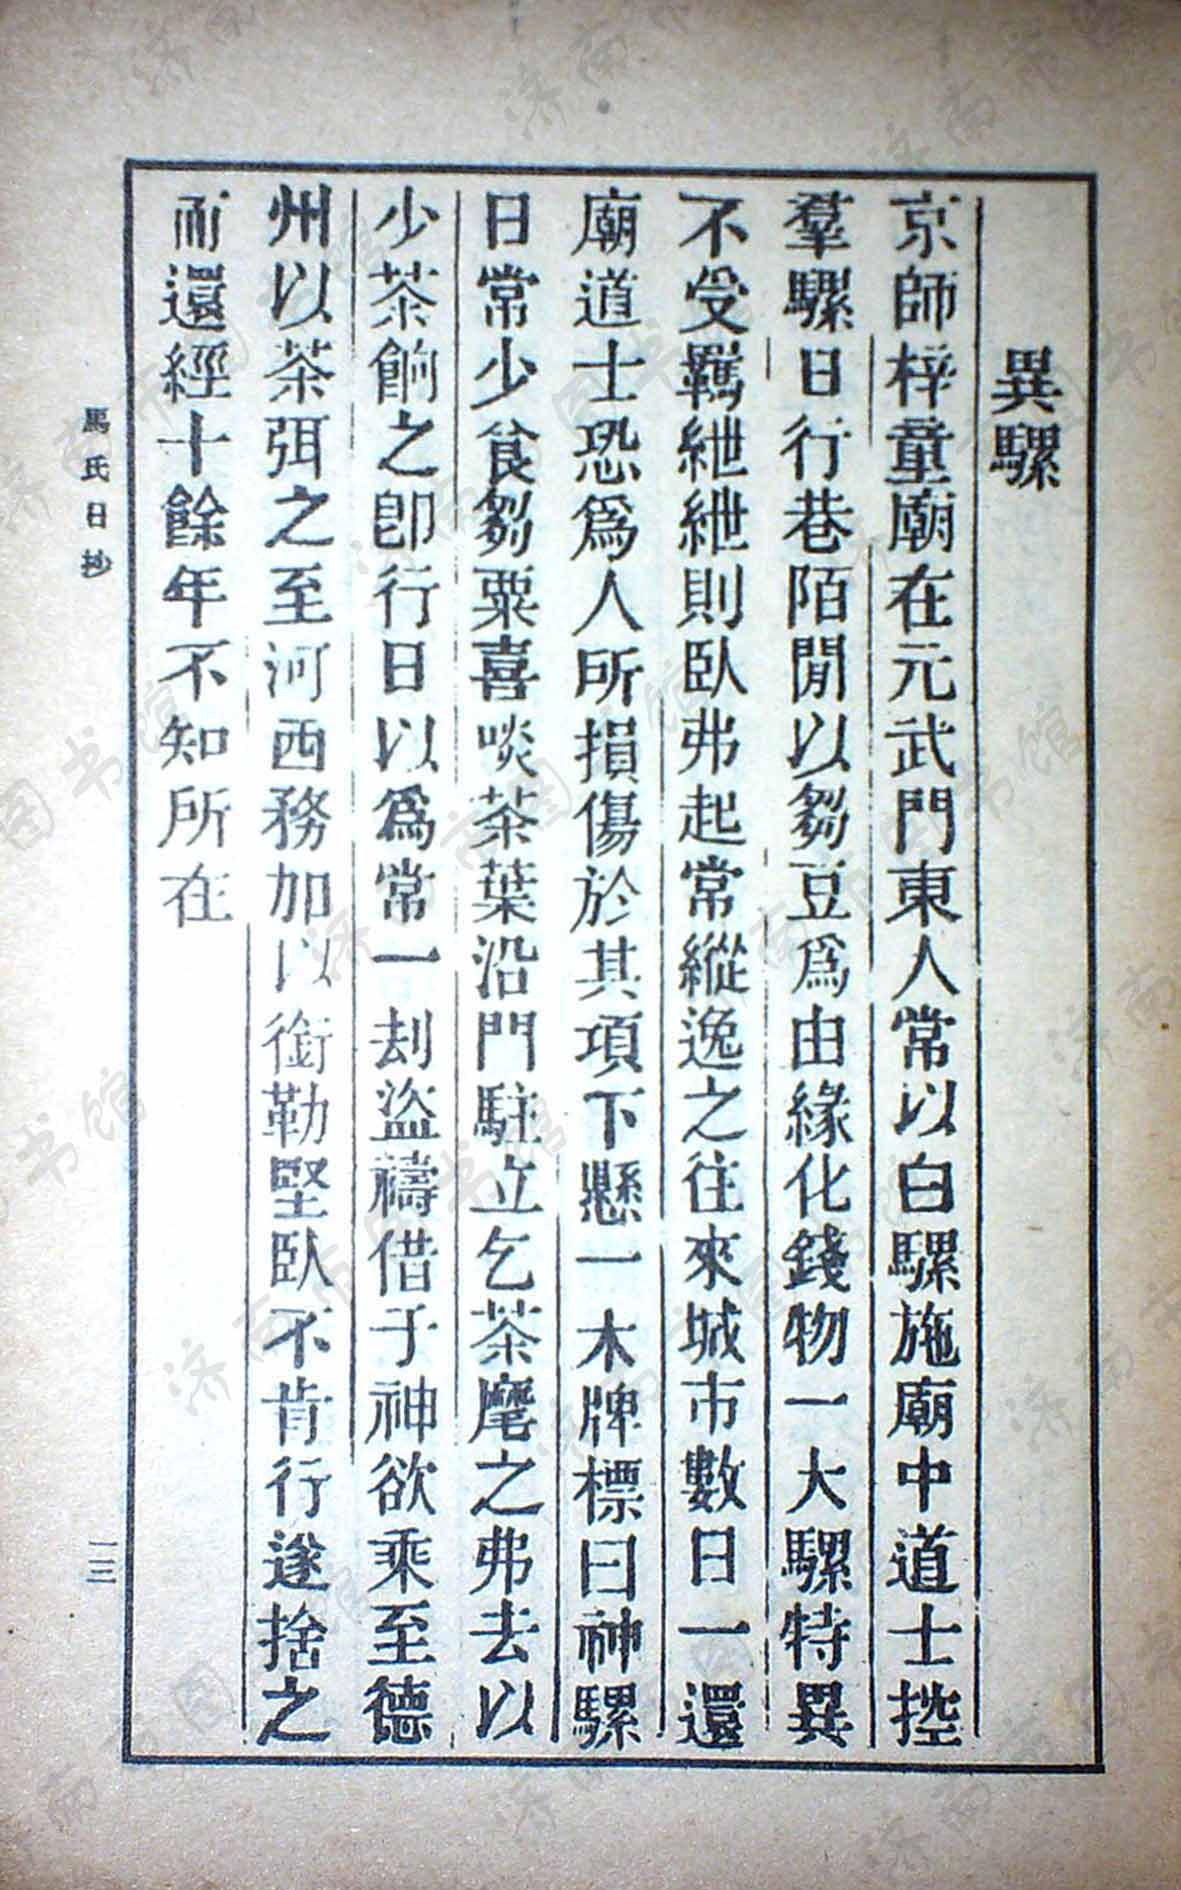 異騾
京師梓童廟在元武門東人常以白騾施廟中道士控
羣騾日行巷陌閒以芻豆爲由緣化錢物一大騾特異
不受羈紲紲則臥弗起常縱逸之往來城市數日一還
廟道士恐爲人所損傷於其項下懸一木牌標曰神騾
日常少食芻粟喜啖茶葉沿門駐立乞茶麾之弗去以
少茶餉之卽行日以爲常一刦盜禱借于神欲乘至德
州以茶弭之至河西務加以銜勒堅臥不肯行遂捨之
而還經十餘年不知所在
馬氏日抄
一三
济南市图书馆